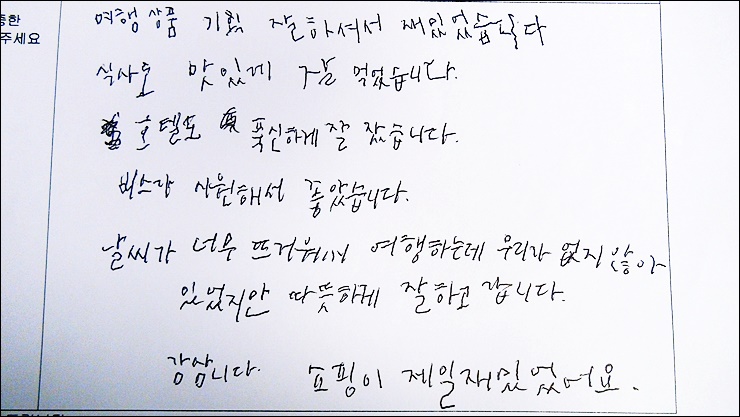 통한
주세요
여행 상품 기획 잘하셔서 재있었습니다
식사도 맛있게 잘 먹었습니다.
호텔도 푹신하게 잘 잤습니다.
버스가 시원해서 좋았습니다.
날씨가 너무 뜨거워서 여행하는데 우리가 없지 않아
있었지만 따뜻하게 잘하고 갑니다.
감삼니다. 쇼핑이 제일재밌었어요.